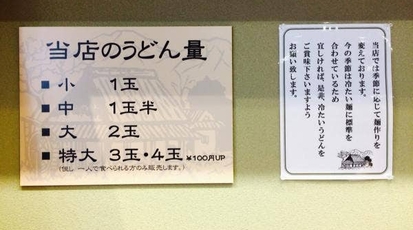 当店のうどん量
■ 小 1玉
■ 中 1玉半
■ 大 2玉
■ 特大 3玉・4玉 ¥100円UP
(但し 一人で食べられる方のみ販売します。)
当店では季節に応じて麺作りを
変えております。
今の季節は冷たい麺に標準を
合わせているため
宜しければ、是非、冷たいうどんを
ご賞味下さいますよう
お願い致します。